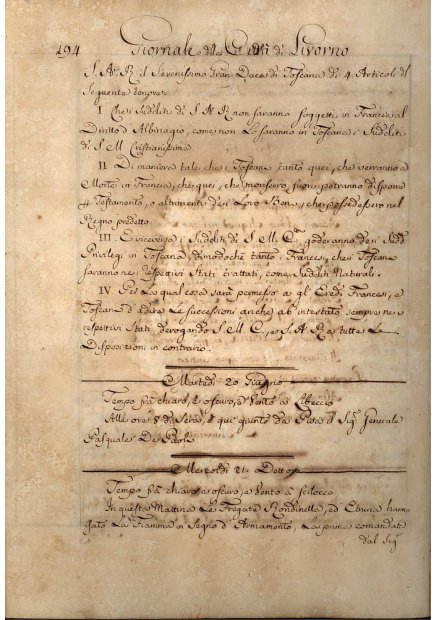 194 Giornale della Città di Livorno
S. A. R. il Serenissimo Gran Duca di Toscana di 4 Articoli del
Seguente tenore.
I. Che i Sudditi di S. A. R. non saranno soggetti in Francia al
Diritto d'Albinagio, come non lo saranno in Toscana i Sudditi
di S. M. Cristianissima
II. Di maniera tale che i Toscani tanto quei, che verranno a
Morte in Francia, che quei, che morissero fuori potranno disporre
p Testamento, o altrimenti dei Loro Beni, che possedessero nel
Regno predetto.
III. E viceversa i Sudditi di S. M. C. goderanno dei Sudd.
Privilegi in Toscana dimodoche tanto i Francesi, che i Toscani
saranno nei Respettivi Stati trattati, come Sudditi Naturali.
IV. Per la qual cosa sarà permesso a gl'Eredi Francesi, e
Toscani d'adire le successioni anche ab intestato sempre nei
respettivi Stati, derogando S. M. C. e S. A. R. a tutte le
Disposizioni in contrario.
Martedì 20 Giugno
Tempo frà chiaro, e oscuro, e Vento a Libeccio
Alle ore 8 di Sera, è qui giunto da Pisa il Sig. Generale
Pasquale De Paoli
Mercoldì 21. Detto
Tempo frà chiaro, e oscuro, e Vento a Scilocco
In questa Mattina le Fregate Rondinella, ed Etruria hanno
gato la Fiamma in segno d'Armamento, la prima comandata
dal Sig.